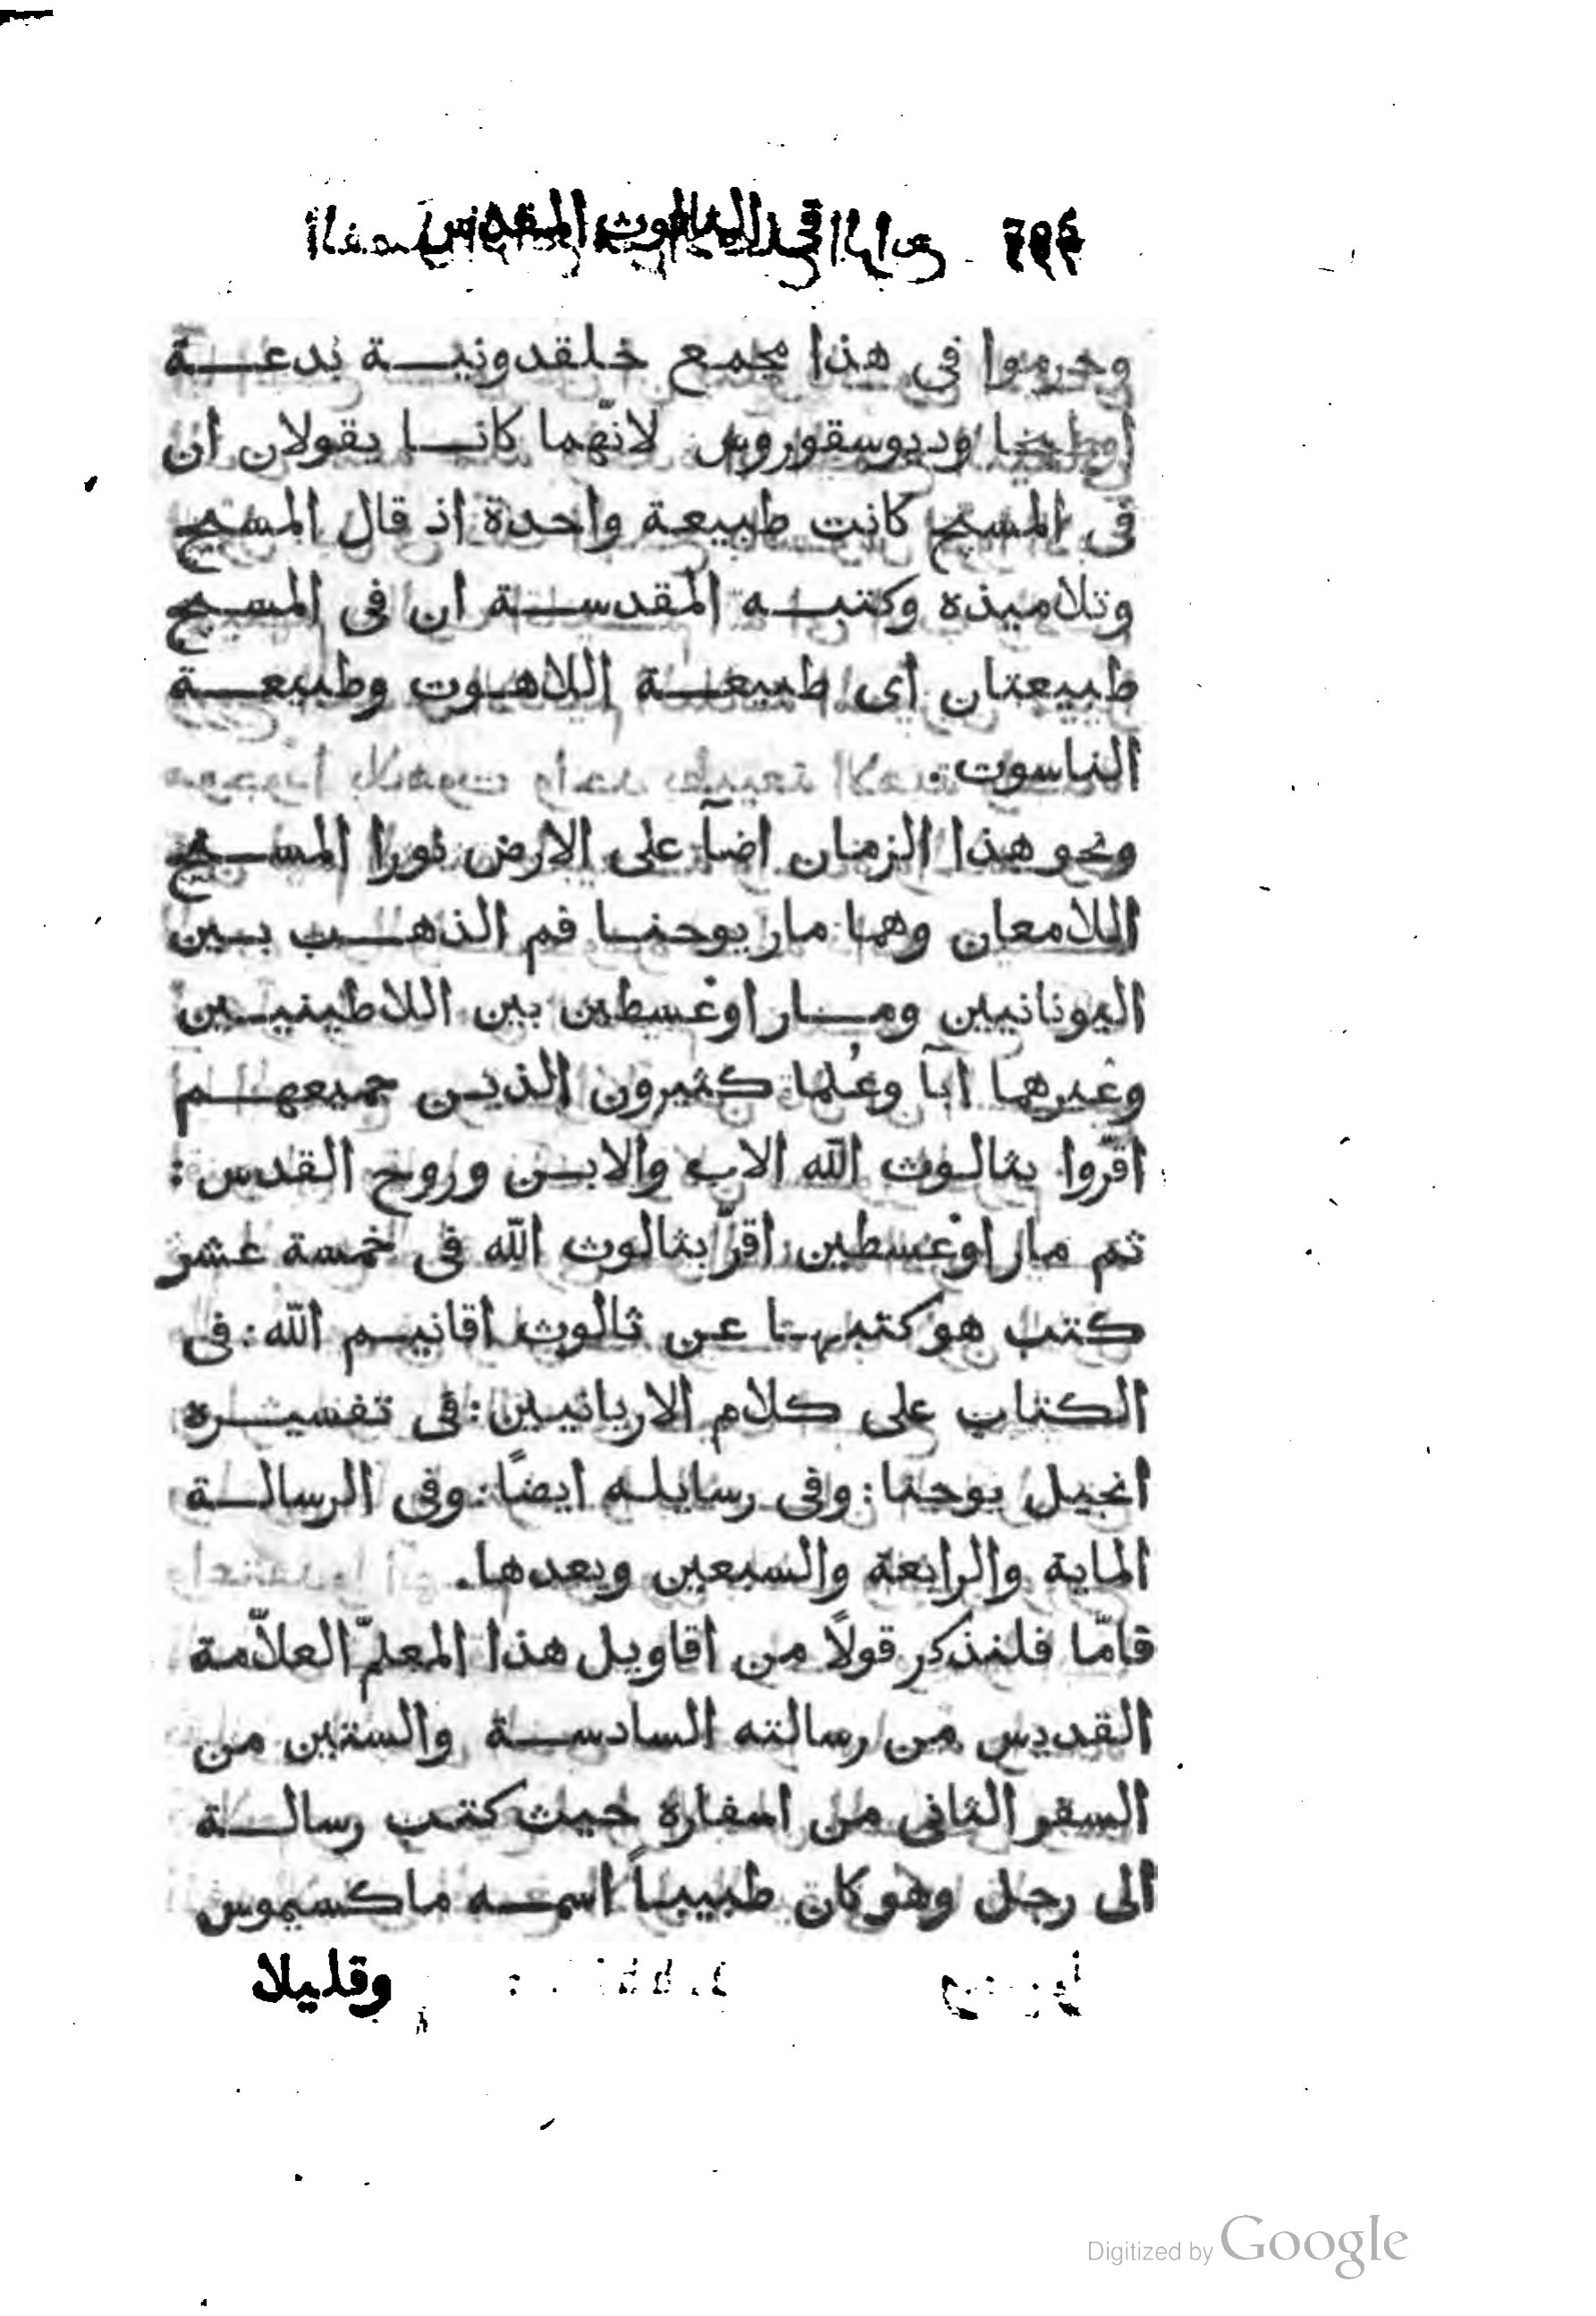 فى الثالوث المقدس
وحرموا فى هذا مجمع خلقدونية بدعة
اوطيخا وديوسقوروس لانّهما كانا يقولان ان
فى المسيح كانت طبيعة واحدة اذ قال المسيح
وتلاميذه وكتبه المقدسة ان فى المسيح
طبيعتان اى طبيعة اللاهوت وطبيعة
الناسوت.
ونحو هذا الزمان اضآ على الارض نورا المسيح
اللامعان وهما مار يوحنا فم الذهب بين
اليونانيين ومار اوغسطين بين اللاطينيين
وغيرهما ابآ وعُلما كثيرون الذين جميعهم
اقرّوا بثالوث الله الاب والابن وروح القدس :
ثم مار اوغسطين اقرّ بثالوث الله فى خمسة عشر
كتب هو كتبها عن ثالوث اقانيم الله : فى
الكتاب على كلام الاريانيين : فى تفسيره
انجيل يوحنا : وفى رسايله ايضًا : وفى الرسالة
الماية والرابعة والسبعين وبعدها.
فامّا فلنذكر قولاً من اقاويل هذا المعلّم العلاّمة
القديس من رسالته السادسة والستين من
السفر الثانى من اسفاره حيث كتب رسالة
الى رجل وهو كان طبيباً اسمه ماكسيموس
وقليلا
Digitized by Google